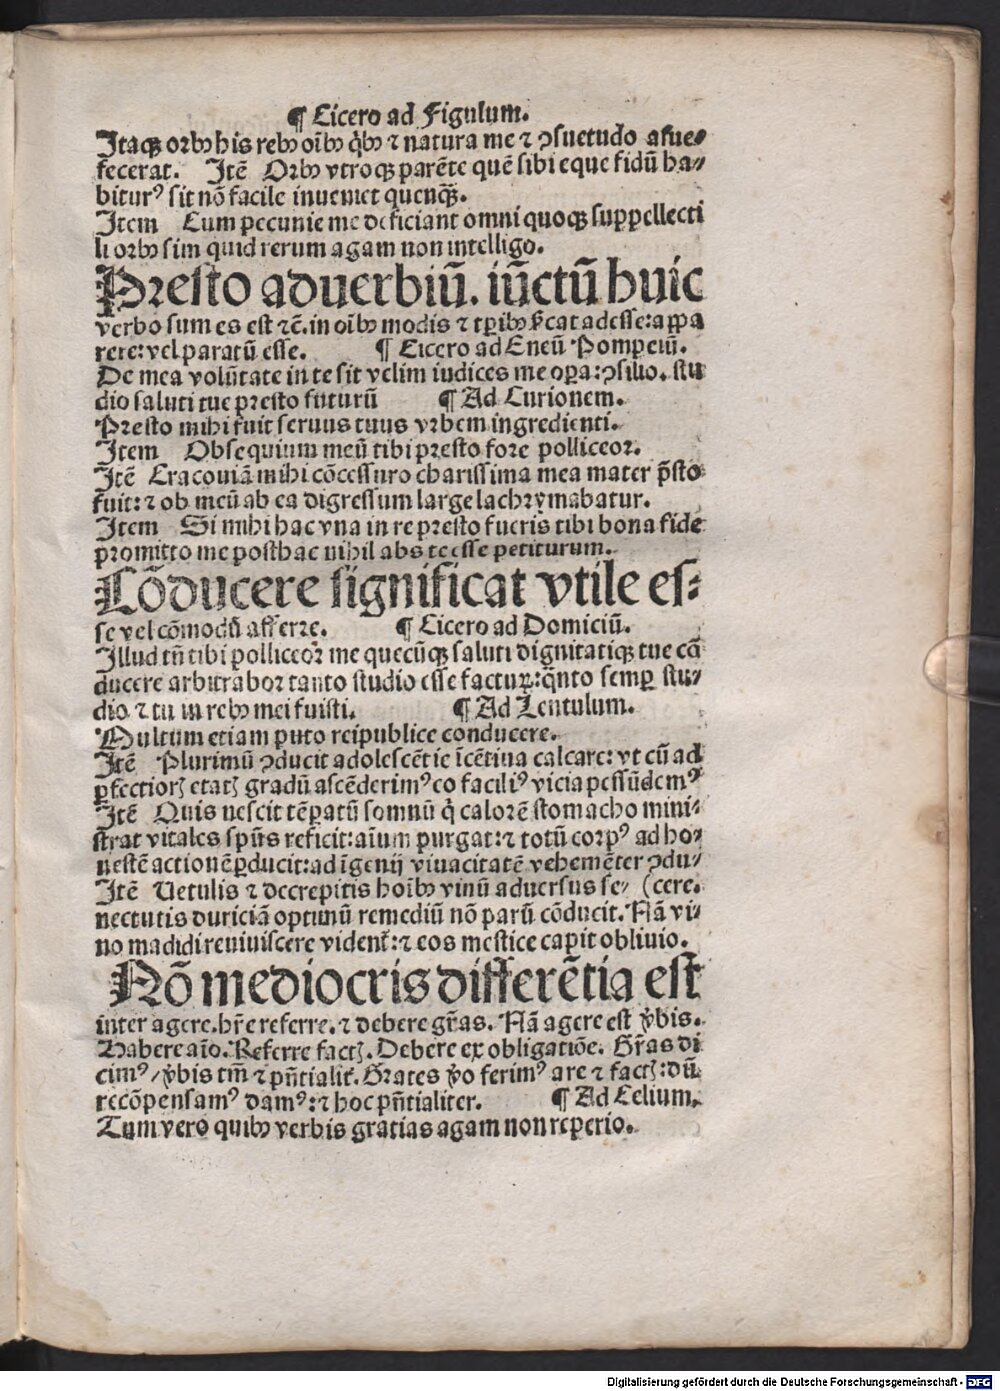 ¶ Cicero ad Figulum.
Itaqꝫ orbꝰ his rebꝰ oībꝰ q̇bꝰ ⁊ natura me ⁊ ↄsuetudo assue⸗
fecerat. Itē Orbꝰ vtroqꝫ parēte quē sibi eque fidū ha⸗
biturꝰ sit nō facile inueniet quenqꝫ.
Item Cum pecunie me deficiant omni quoqꝫ suppellecti
li orbꝰ sim quid rerum agam non intelligo.
Presto aduerbiū. iūctū huic
verbo sum es est ⁊c̄. in oībꝰ modis ⁊ tꝑibꝰ ẜcat adesse: appa
rere: vel paratū esse. ¶ Cicero ad Eneū Pompeiū.
De mea volūtate in te sit velim iudices me oꝑa: ↄsilio. stu
dio saluti tue presto futurū ¶ Ad Curionem.
Presto mihi fuit seruus tuus vrbem ingredienti.
Item Obsequium meū tibi presto fore polliceor.
Itē Cracouiā mihi cōcessuro charissima mea mater p̄sto
fuit: ⁊ ob meū ab ea digressum large lachrymabatur.
Item Si mihi hac vna in re presto fueris tibi bona fide
promitto me posthac nihil abs te esse petiturum.
Cōducere significat vtile es⸗
se vel cōmodū afferre. ¶ Cicero ad Domiciū.
Illud tn̄ tibi polliceor me quecūqꝫ saluti dignitatiqꝫ tue cō
ducere arbitrabor tanto studio esse facturꝝ: q̄nto semꝑ stu⸗
dio ⁊ tu in rebꝰ mei fuisti. ¶ Ad Lentulum.
Multum etiam puto reipublice conducere.
Itē Plurimū ↄducit adolescētie īcētiua calcare: vt cū ad
ꝑfectiorꝭ etatꝭ gradū ascēderimꝰ eo faciliꝰ vicia pessūdemꝰ
Itē Quis nescit tēꝑatū somnū q̇ calorē stomacho mini⸗
strat vitales spūs reficit: aīum purgat: ⁊ totū corpꝰ ad ho⸗
nestē actionē ꝑducit: ad īgenij viuacitatē vehemēter ↄdu⸗
Itē Vetulis ⁊ decrepitis hoībꝰ vinū aduersus se⸗ (cere.
nectutis duriciā optimū remediū nō parū cōducit. Nā vi⸗
no madidi reuiuiscere vident̄: ⁊ eos mestice capit obliuio.
Nō mediocris differētia est
inter agere. hr̄e referre. ⁊ debere gr̄as. Nā agere est v̄bis.
Habere aīo. Referre factꝭ. Debere ex obligatiōe. Gr̄as di
cimꝰ / v̄bis tm̄ ⁊ pn̄tialit̄. Grates v̄o ferimꝰ are ⁊ factꝭ: dū
recōpensamꝰ damꝰ: ⁊ hoc pn̄tialiter. ¶ Ad Celium.
Tum vero quibꝰ verbis gratias agam non reperio.
Digitalisierung gefördert durch die Deutsche Forschungsgemeinschaft - DFG